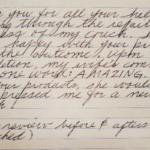 you for all your hel
g through the repair
g of my couch. I
happy with your pr
the outcome! Upon
tion, my wife's comm
one word: AMAZING.
your products, she would
pressed me for a new
!
review before & afters
ched)